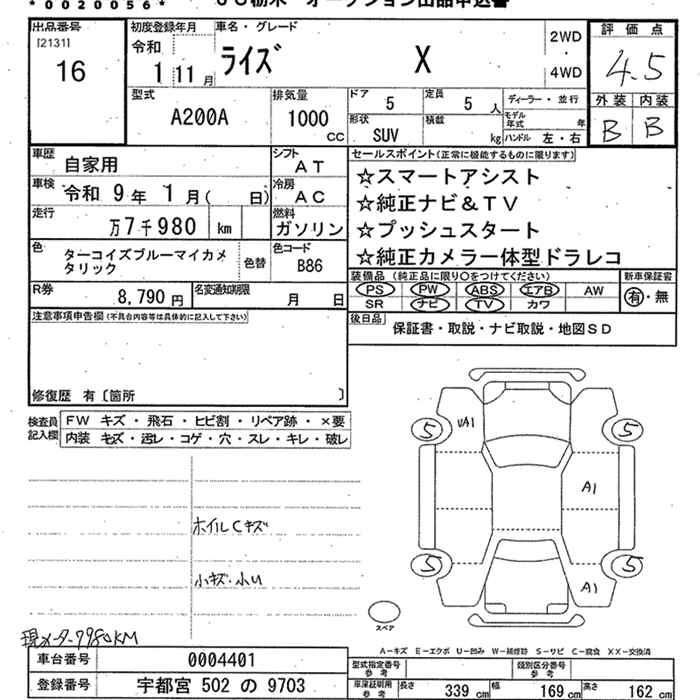 *0020056*
JU栃木 オークション出品申込書
出品番号
[2131]
16
初度登録年月
令和
1 11 月
車名・グレード
ライズ X
2WD
・
4WD
評価点
4.5
外装 内装
B B
型式
A200A
排気量
1000
CC
ドア
5
定員
5 人
形状
SUV
積載
kg
ディーラー・並行
モデル年式 年
ハンドル 左・右
車歴
自家用
シフト
AT
車検
令和 9年 1月( 日)
冷房
AC
走行
万7千980 km
燃料
ガソリン
色
ターコイズブルーマイカメタリック
色替
色コード
B86
R券
8,790 円
名変通知期限
月 日
セールスポイント(正常に機能するものに限ります)
☆スマートアシスト
☆純正ナビ&TV
☆プッシュスタート
☆純正カメラ一体型ドラレコ
装備品 (純正品に限り○をつけてください)
PS PW ABS エアB AW
SR ナビ TV カワ
新車保証書
有・無
後日品
保証書・取説・ナビ取説・地図SD
注意事項申告欄(不具合内容等は具体的に記入して下さい)
修復歴 有〔箇所 〕
検査員記入欄
FW キズ・飛石・ヒビ割・リペア跡・×要
内装 キズ・汚レ・コゲ・穴・スレ・キレ・破レ
ホイルCキズ
小キズ・小U
現メーター7980KM
5
UA1
5
A1
5
A1
5
スペア
A-キズ E-エクボ U-凹み W-補修跡 S-サビ C-腐食 XX-交換済
車台番号
0004401
登録番号
宇都宮 502 の 9703
型式指定番号
参考
類別区分番号
参考
車庫証明用
参考
長さ 339 cm
幅 169 cm
高さ 162 cm